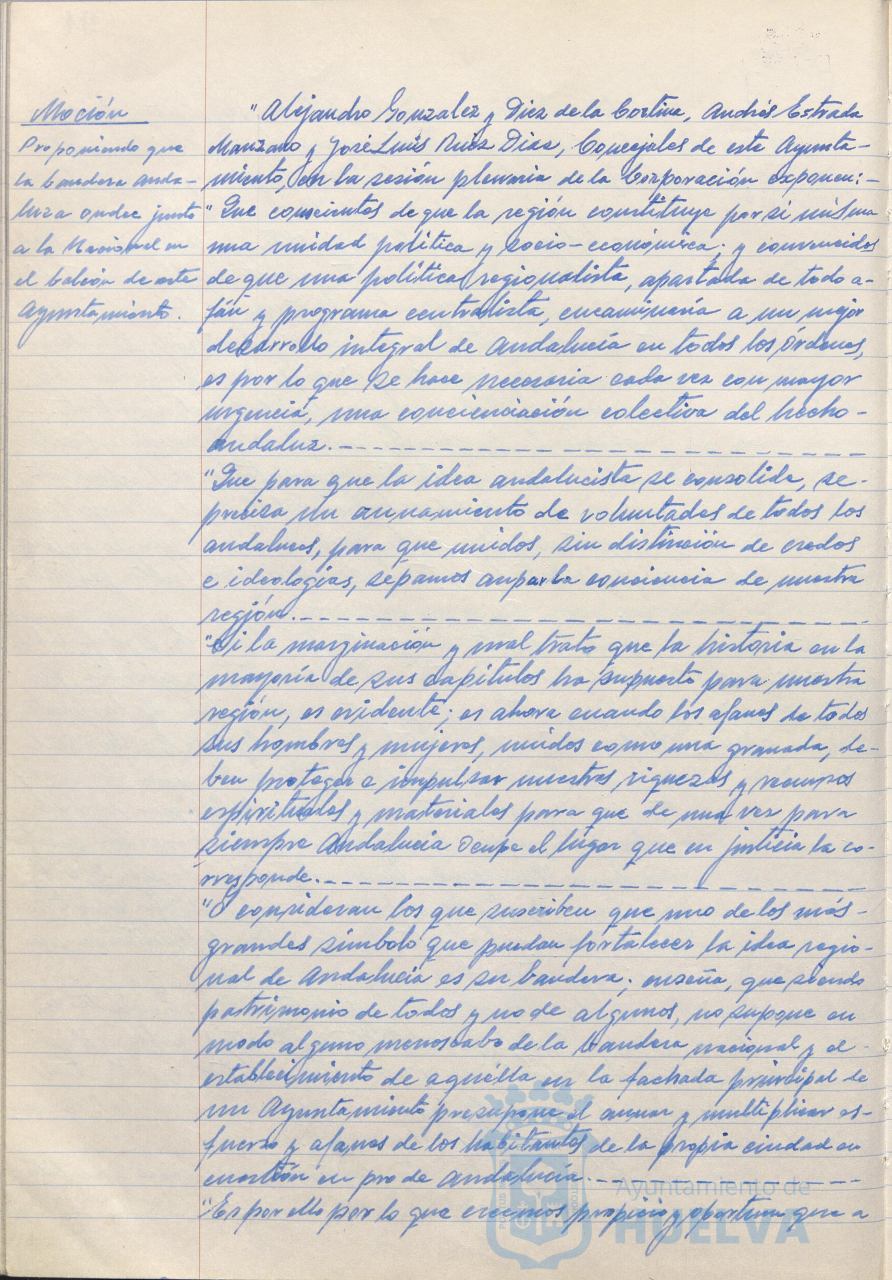 Moción
Proponiendo que
la bandera anda-
luza ondee junto
a la Nacional en
el balcón de este
Ayuntamiento.
"Alejandro Gonzalez y Diez de la Cortina, Andrés Estrada
Manzano y José Luis Ruiz Diaz, Concejales de este Ayunta-
miento, en la sesión plenaria de la Corporación exponen:-
"Que conscientes de que la región constituye por si misma
una unidad política y socio-económica; y convencidos
de que una política regionalista, apartada de todo a-
fán y programa centralista, encaminaría a un mejor
desarrollo integral de Andalucía en todos los órdenes,
es por lo que se hace necesaria cada vez con mayor
urgencia, una concienciación colectiva del hecho-
andaluz.
"Que para que la idea andalucista se consolide, se-
precisa un aunamiento de voluntades de todos los
andaluces, para que unidos, sin distinción de credos
e ideologías, sepamos la conciencia de nuestra
región.
"Si la marginación y mal trato que la historia en la
mayoría de sus capítulos ha supuesto para nuestra
región, es evidente; es ahora cuando los afanes de todos
sus hombres y mujeres, unidos como una granada, de-
ben proteger e impulsar nuestras riquezas y recursos
espirituales y materiales para que de una vez para
siempre Andalucía ocupe el lugar que en justicia la co-
rresponde.
"Y consideran los que suscriben que uno de los más-
grandes símbolo que puedan fortalecer la idea regio-
nal de Andalucía es su bandera; enseña, que siendo
patrimonio de todos y no de algunos, no supone en
modo alguno menoscabo de la bandera nacional y el-
establecimiento de aquélla en la fachada principal de
un Ayuntamiento presupone el aunar y multiplicar es-
fuerzo y afanes de los habitantes de la propia ciudad en
cuestión en pro de Andalucía.
"Es por ello por lo que creemos propicio y oportuno que a
Ayuntamiento de
HUELVA